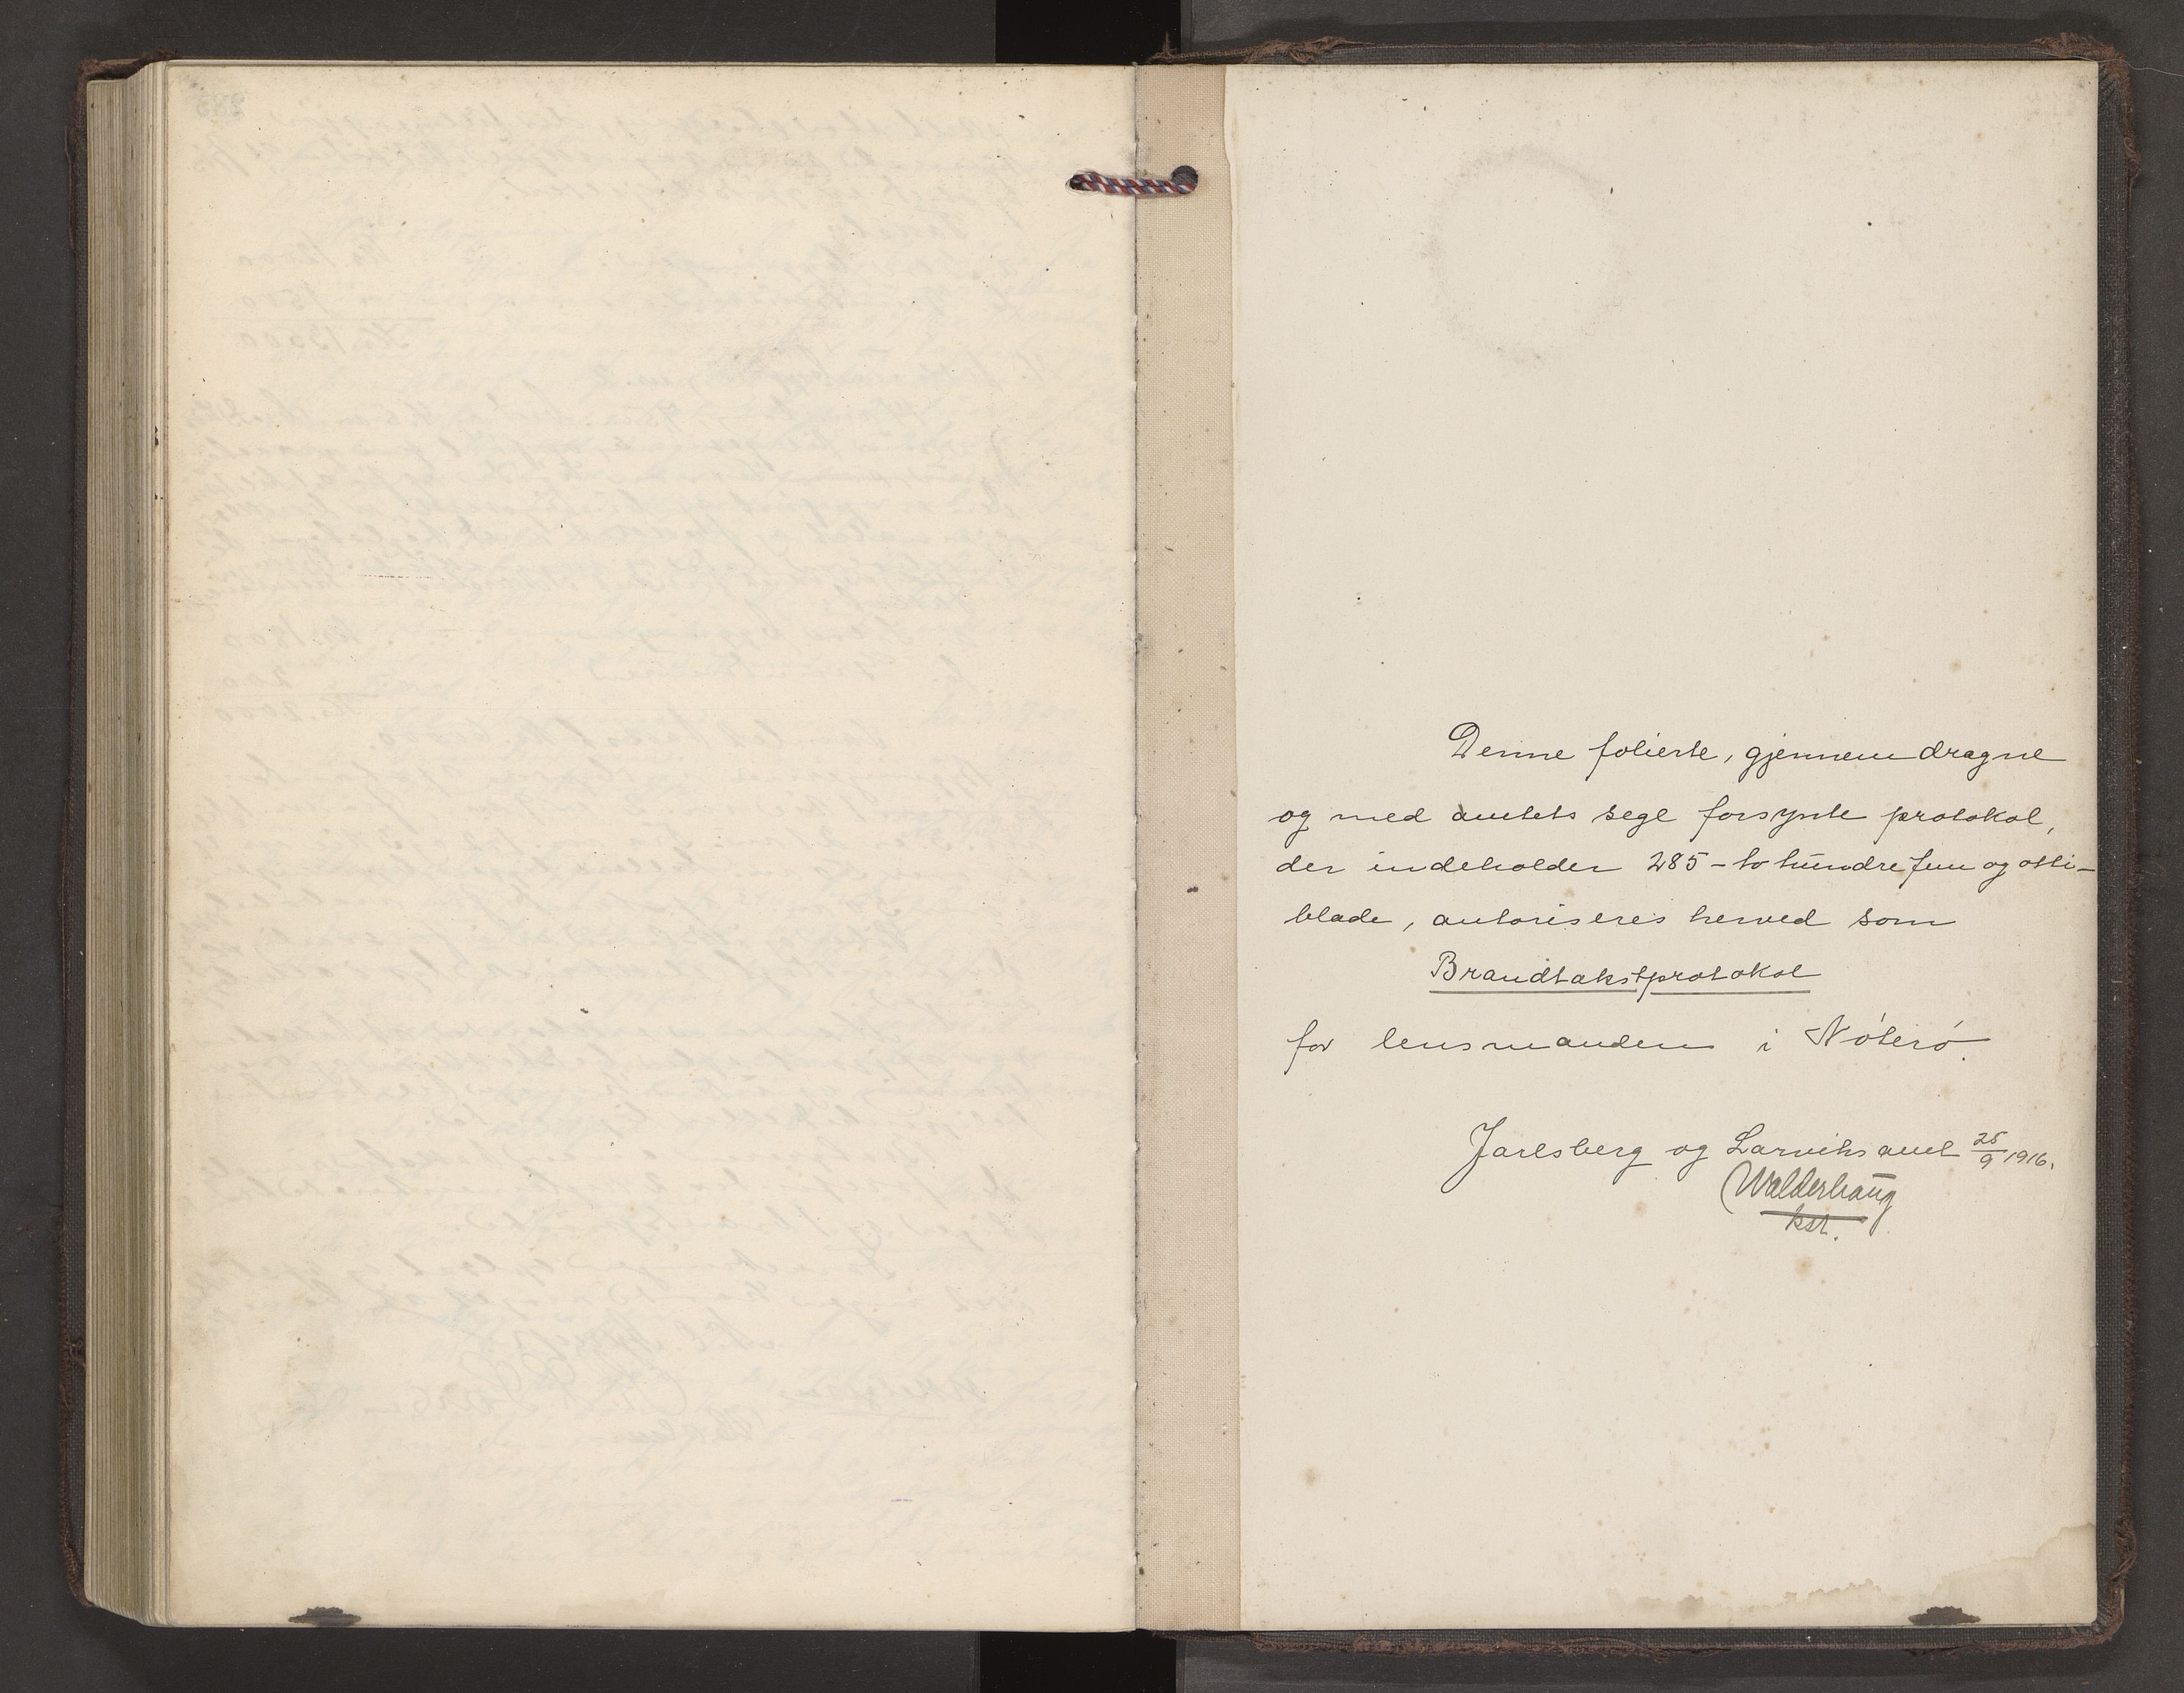 Denne folierte, gjennemdragne
og med amtets segl forsynte protokol,
der indeholder 285 - to hundre fem og otti -
blade, autoriseres herved som
Brandtakstprotokol
for lensmanden i Nøterø.
Jarlsberg og Larviks amt 25/9 1916.
Walderhaug
kst.